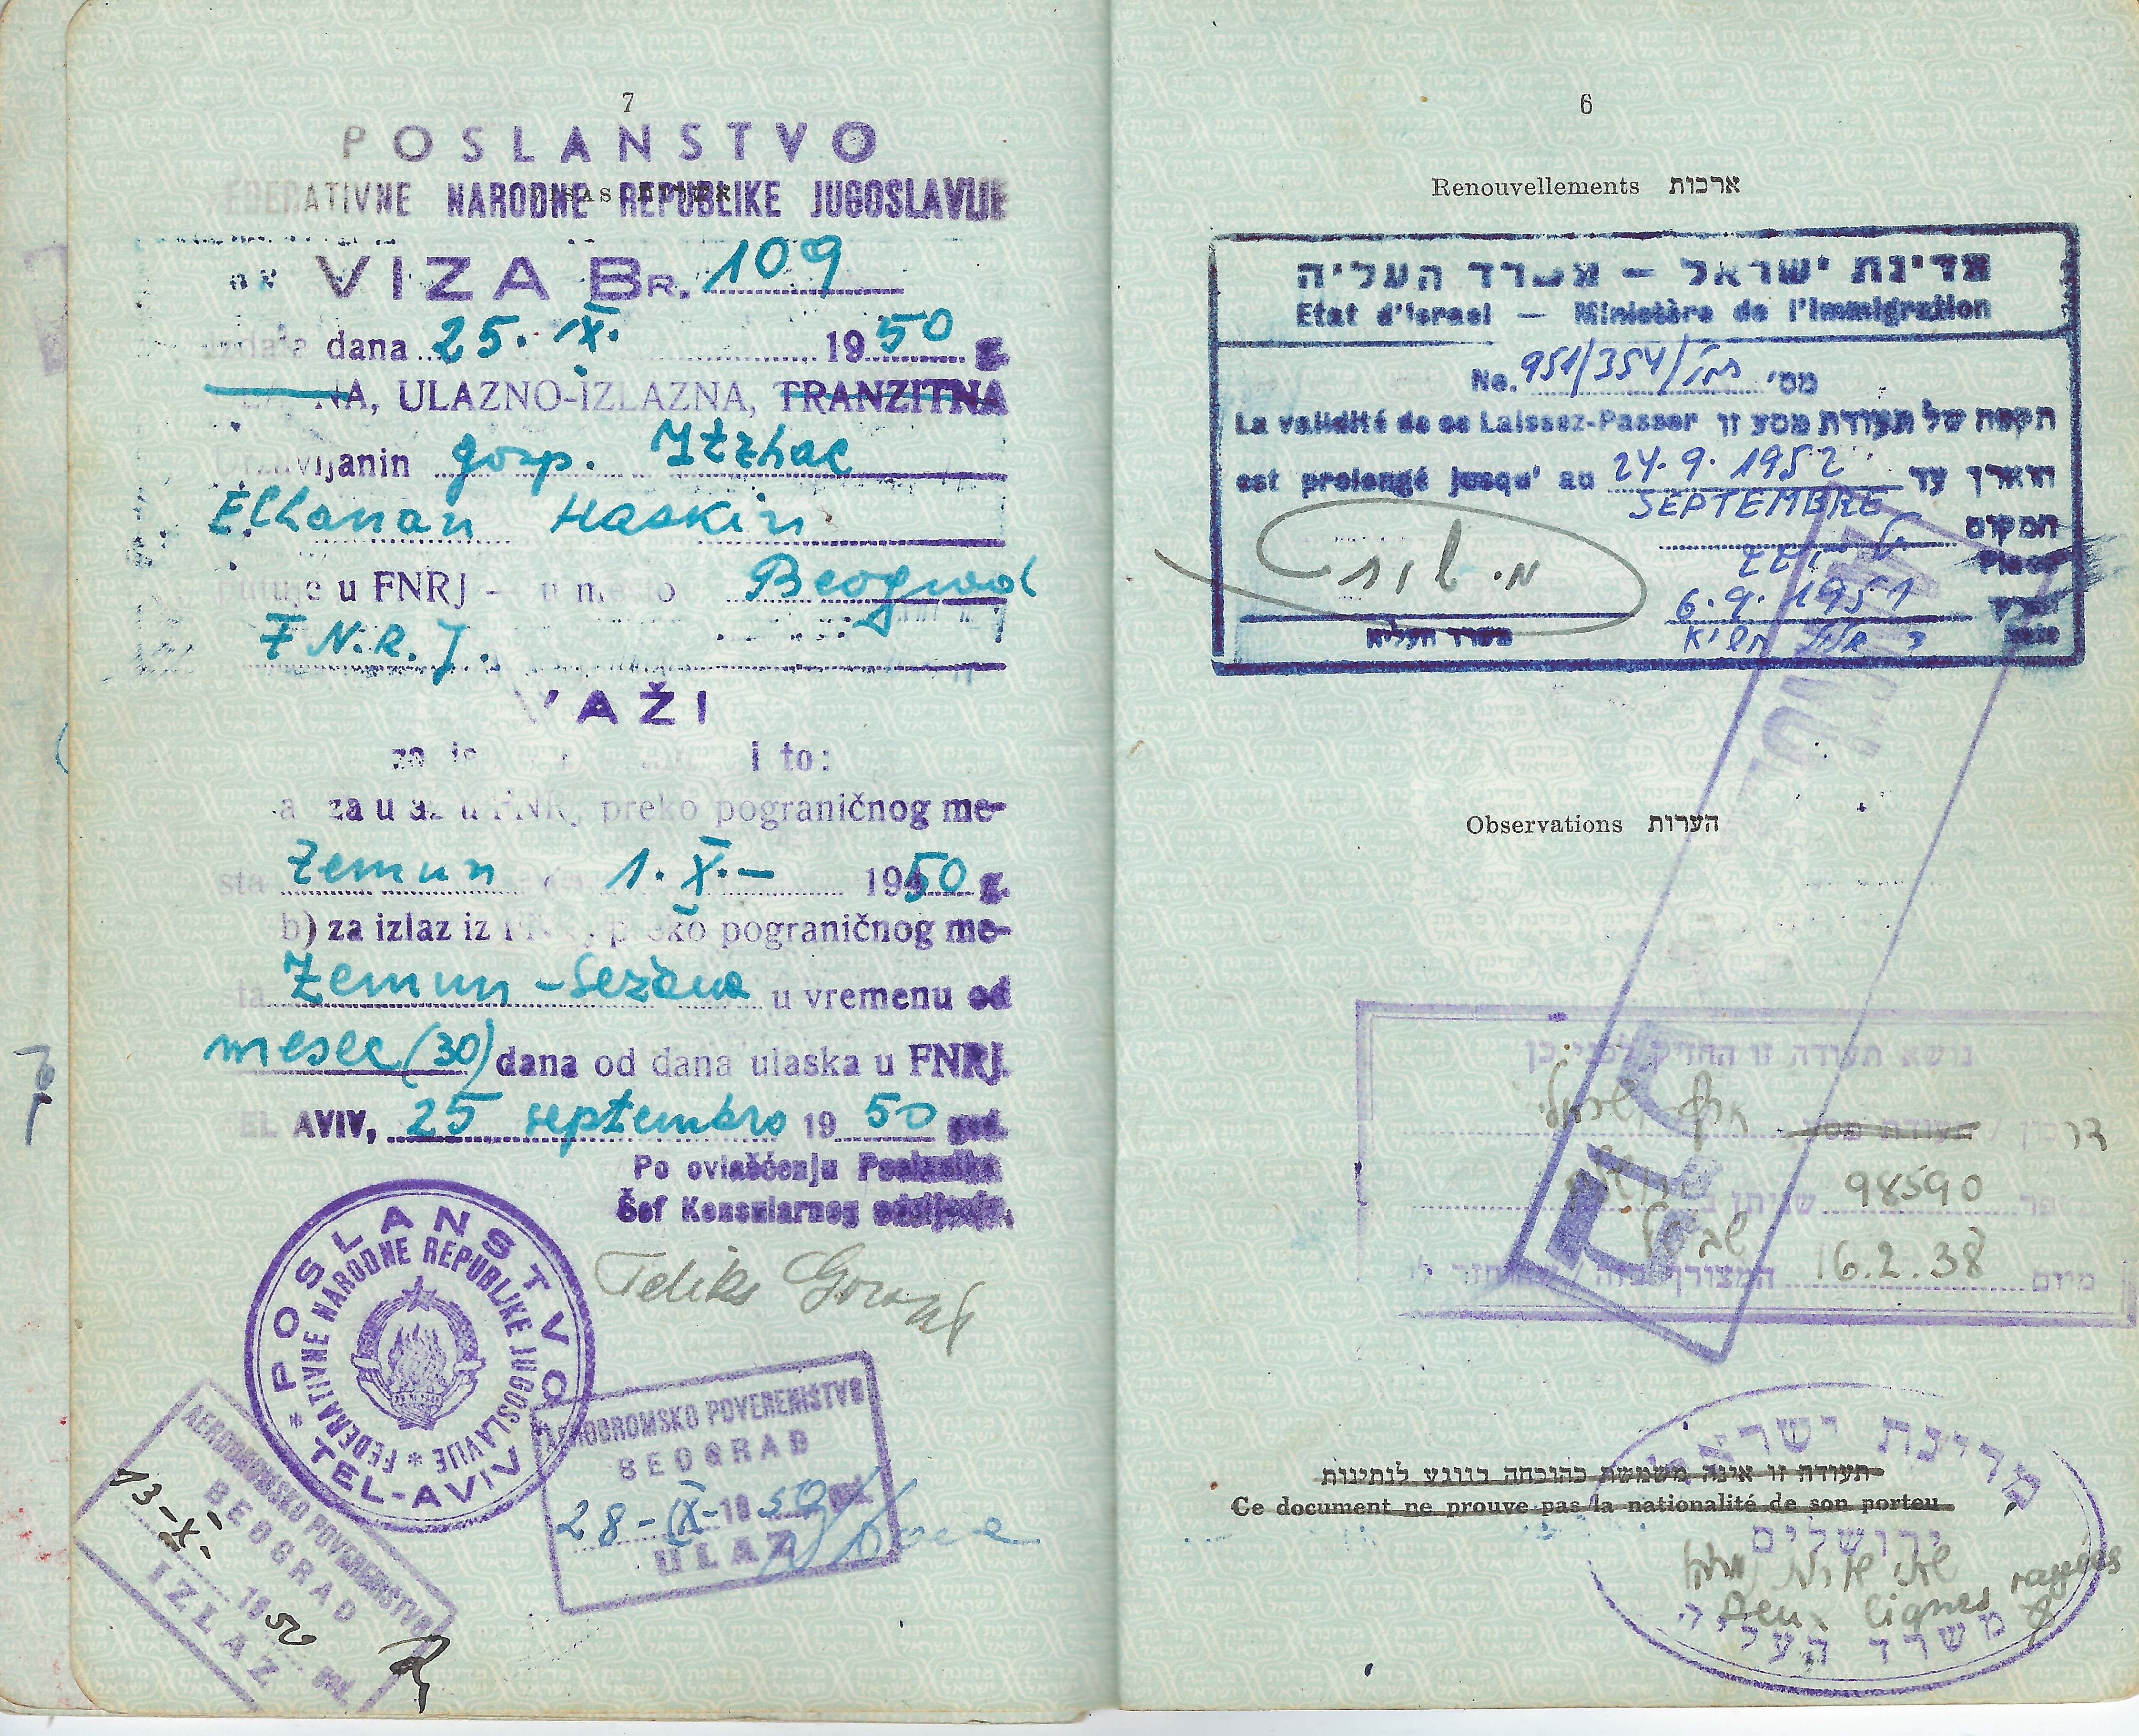 7
POSLANSTVO
FEDERATIVNE NARODNE REPUBLIKE JUGOSLAVIJE
VIZA BR. 109
izdata dana 25. IX. 1950 g.
ULAZNO-IZLAZNA, TRANZITNA
Državljanin gosp. Itzhac
Elhanan Haskin
putuje u FNRJ – u mesto Beograd
F.N.R.J.
VAŽI
i to:
a za ulaz u FNRJ preko pograničnog me-
sta Zemun 1. X. – 1950 g.
b) za izlaz iz FNRJ preko pograničnog me-
sta Zemun – Sežana u vremenu od
mesec (30) dana od dana ulaska u FNRJ.
TEL AVIV, 25 septembra 1950 god.
Po ovlašćenju Poslanika
Šef Konsularnog odeljenja,
POSLANSTVO
FEDERATIVNE NARODNE REPUBLIKE JUGOSLAVIJE
TEL-AVIV
AERODROMSKO POVERENIŠTVO
BEOGRAD
28-IX-1950 god.
ULAZ
AERODROMSKO POVERENIŠTVO
BEOGRAD
13-X-1950 god.
IZLAZ
6
Renouvellements ארכות
מדינת ישראל – משרד העליה
Etat d'Israel — Ministère de l'Immigration
No. 951/354/ מס'
La validité de ce Laissez-Passer תקפה של תעודת מסע זו
est prolongé jusqu' au 24.9.1952 תוארך עד
SEPTEMBRE
המקום
Place
6.9.1951
Date
משרד העליה
Observations הערות
נושא תעודה זו החזיק לפני כן
תעודת מסע
98590
מיום 16.2.38
תעודה זו אינה משמשת כהוכחה בנוגע לנתינות
Ce document ne prouve pas la nationalité de son porteur
מדינת ישראל
ירושלים
Deux lignes rayées
משרד העליה